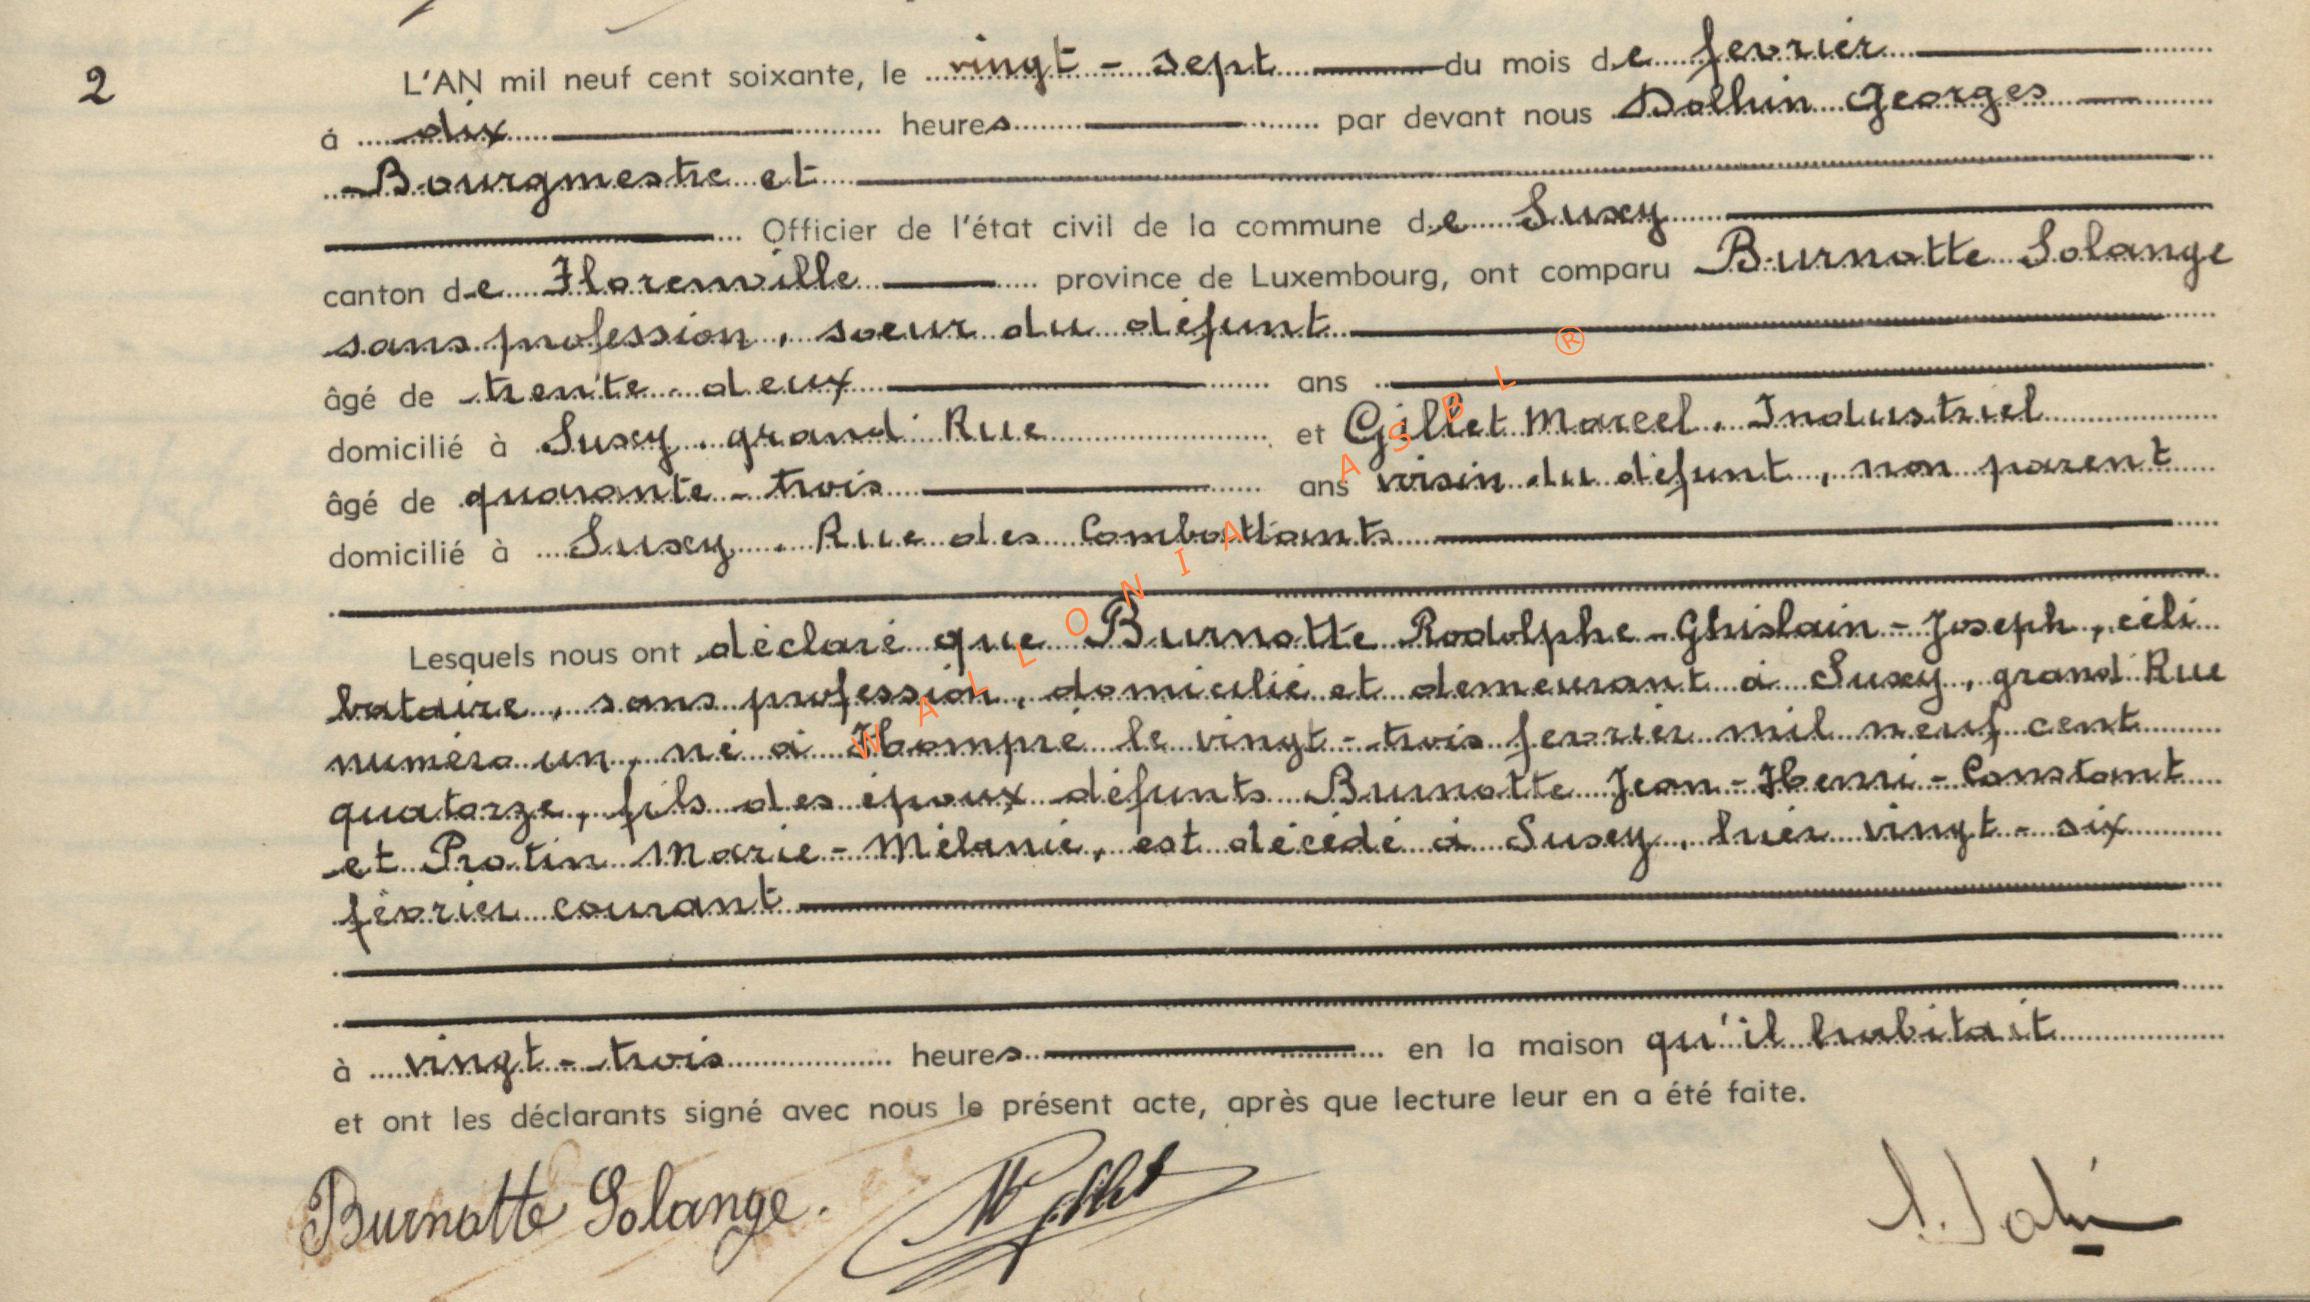 2
L'AN mil neuf cent soixante, le vingt - sept du mois de fevrier
à dix heures par devant nous Dolhin Georges
Bourgmestre et
Officier de l'état civil de la commune de Suxy
canton de Florenville province de Luxembourg, ont comparu Burnotte Solange
sans profession, soeur du défunt
âgé de trente - deux ans
domicilié à Suxy, grand' Rue et Gillet Marcel, Industriel
âgé de quarante - trois ans voisin du défunt, non parent
domicilié à Suxy, Rue des Combattants
Lesquels nous ont déclaré que Burnotte Rodolphe - Ghislain - Joseph, céli
bataire, sans profession, domicilié et demeurant à Suxy, grand' Rue
numéro un, né à Hompré le vingt - trois fevrier mil neuf cent
quatorze, fils des époux défunts Burnotte Jean - Henri - Constant
et Protin Marie - Mélanie, est décédé à Suxy, hier vingt - six
février courant
à vingt - trois heures en la maison qu'il habitait
et ont les déclarants signé avec nous le présent acte, après que lecture leur en a été faite.
Burnotte Solange.
WALLONIA ASBL ®